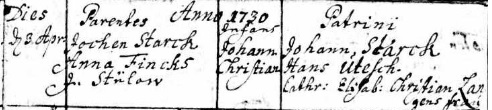 Dies Parentes Anno 1730 Infans Patrini
3. Apr. Jochen Starck Johann Johann Starck
Anna Fincks Christian Hans Utesch.
Stülow Cathr: Elisab: Christian Lan
gens frau